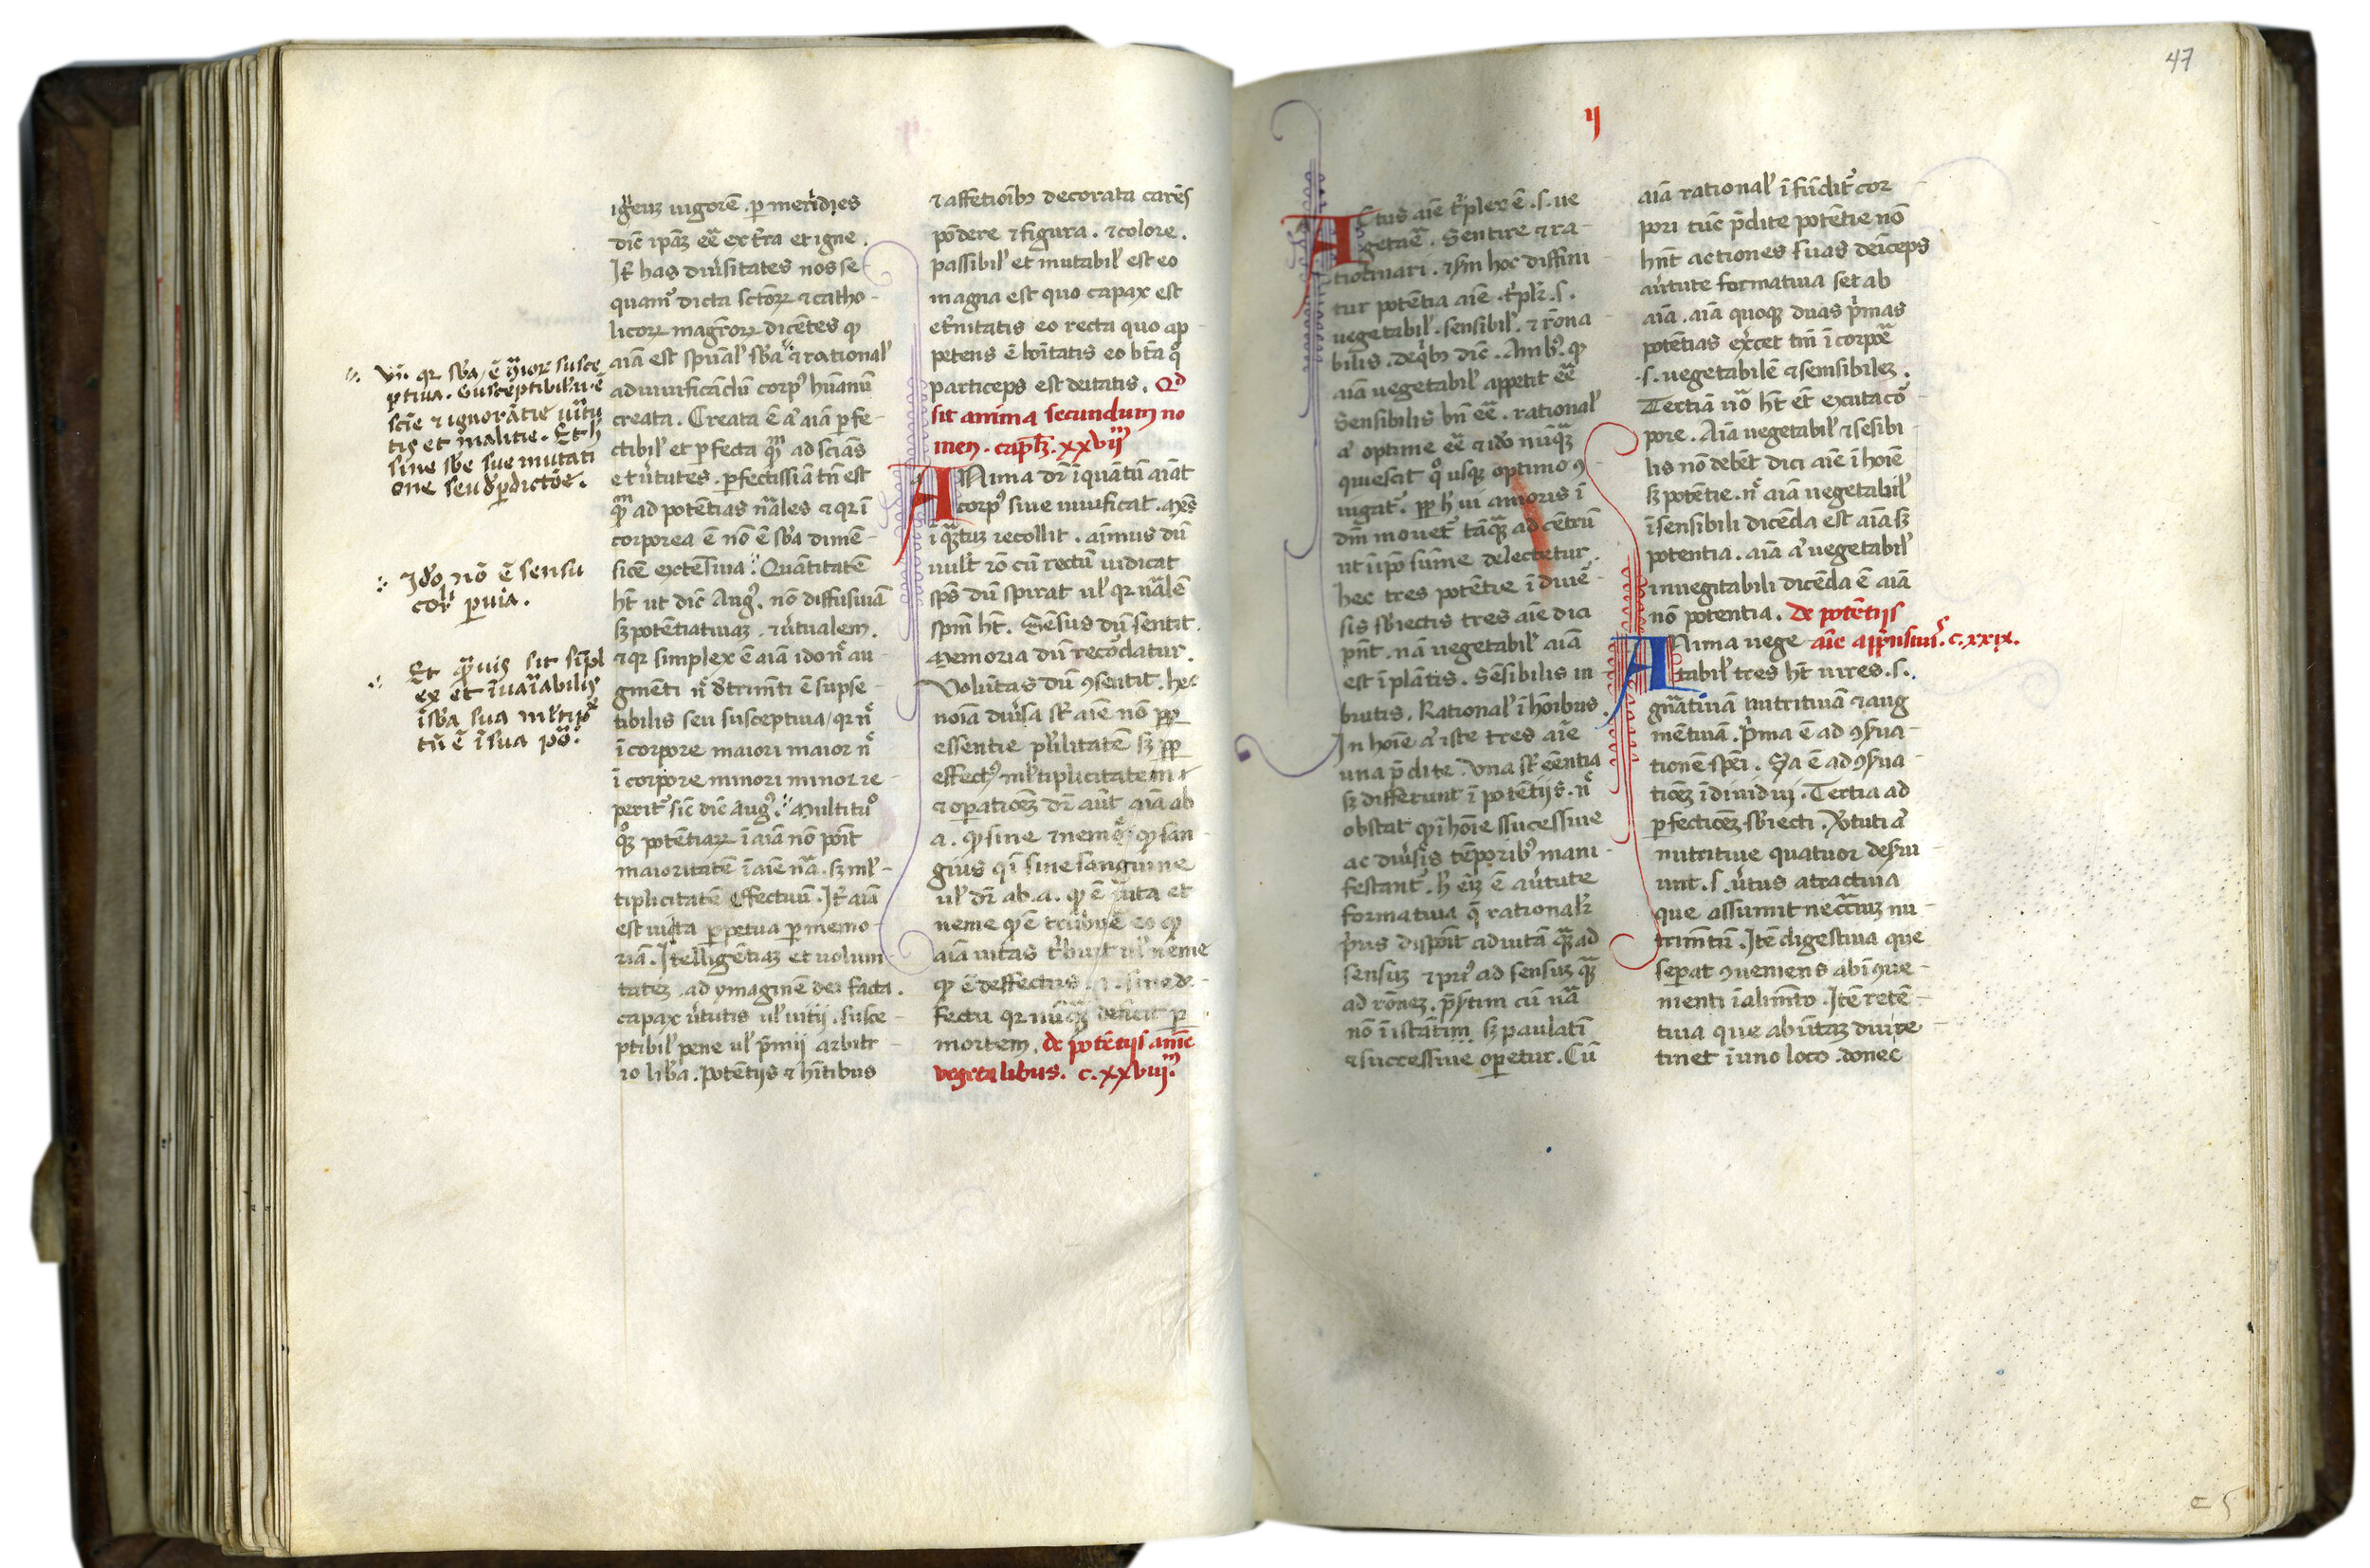 igneuz uigorē . per meridies
dic̄ ip̄az eē ex t̄ra et igne .
It̄ has diuersitates nos se-
quam̄ dicta sctōrꝝ ⁊ catho-
licorꝝ magrōrꝝ dicētes ꝙ
aīa est spūal' sb̄a ⁊ rational'
ad uiuificādū corpꝰ hūanū
creata . Creata ē aᷓ aīa perfe-
ctibil' et perfecta qᷓm ad sciās
et u̓tutes . perfectissīa tn̄ est
qᷓm ad potētias nāles ⁊ qr ī
corporea ē nō ē sb̄a dimē-
sicē extēsiua . Quātitatē
ht̄ ut dic̄ Augꝰ . nō diffusiuā
sꝫ potētiatiuaz . ⁊ u̓tualem .
⁊ qr simplex ē aīa ido nͨ au-
gmēti nͨ detrimēti ē susce-
tibilis seu susceptiua / qr nͨ
ī corpore maiori maior nͨ
ī corpore minori minor re-
perit̄ sic̄ dic̄ Augꝰ . Multitud̓
qᷓꝫ potētiarꝝ ī aīa nō pōit
maioritatē ī aīe nāᷓ . sꝫ ml'-
tiplicitatē effectuū . It̄ aīa
est uita perpetua per memo-
riā . Itelligētiaz et uolun-
tatez . ad ymaginē dei facta .
capax u̓tutis ul' uitij . susce-
ptibil' pene ul' p̄mij arbitr-
io lib̄a . Potētijs ⁊ hītibus
Vn̄ . qr sb̄a ē
ptiua . Susceptibilis ē
sciē ⁊ ignorātie u̓tu
tis et malitie . Et h̓
sine sb̄e sue mutati
one seu d̓perdictōe .
Ido nō ē sensu
corꝑ peruia .
Et qᷓuis sit simpl
ex et īuariabilis
ī sb̄a sua ml'tip'
tn̄ ē ī sua pōᷓ .
⁊ affetioībꝫ decorata carēs
pōdere ⁊ figura . ⁊ colore .
passibil' et mutabil' est eo
magna est quo capax est
et̓nitatis eo recta quo ap-
petens ē bōitatis eo bt̄a qͦ
particeps est deitatis . Qd
sit anima secundum no
men . capl̄ꝫ . xxvij
ANima dr̄ īquātū aīat
corpꝰ siue uiuificat . mēs
īqᷓtuz recollit . aīmus dū
uult rō cū rectū iudicat
sp̄s dū spirat ul' qr nālē
sp̄m ht̄ . Sēsus dū sentit .
Memoria dū recordatur .
Volūtas dū ꝯsentit . hec
noīa diu̓sa st̄ aīe nō ꝓpꝑ
essentie pl̓litatē sꝫ ꝓpꝑ
effectꝰ ml'tiplicitatem
⁊ operaticēz dr̄ aūt aīa ab
a . qᷓ sine ⁊ nemo / qᷓ san-
guis qī sine sanguine
ul' dr̄ ab . a . qᷓ ē uita et
neme qᷓ ē eo qᷓ
aīa uitas t̓buit ul' neme
qᷓ ē deffectus . sine de-
fectu qr nūqᷓꝫ deficit per
mortem . de potētijs aīme
vegetalibus . c . xxviij .
47
ij
ACtus aīe t̓plex ē . s . ue
getaēᷓ . Sentire ⁊ ra-
tiocinari . ⁊ sm̄ hoc diffini
tur potētia aīe . t̓plr̄ . s .
uegetabil' . sensibil' . ⁊ rōna
bilis . de qͥbꝫ dic̄ . Ambꝰ . ꝙ
aīa uegetabil' appetit eēᷓ
Sensibilis bn̄ eēᷓ . rational'
aᷓ optime eēᷓ ⁊ ido nūqᷓꝫ
quiescit qͦ usqꝫ optimo ꝯ-
iugat̄ . ꝓpꝑ h̓ ui amoris ī
dm̄ mouet̄ tāqᷓꝫ ad cētrū
ut ipō sūme delectetur .
hec tres potētie ī diuē-
sis sb̓iectis tres aīe dici
pn̄t . nā uegetabil' aīa
est ī plātis . Sēsibilis in
brutis . Rational' ī hoībus .
In hoīe aᷓ iste tres aīe
una p̄dite . Vna st̄ eēntia
sꝫ differunt ī potētijs . nͨ
obstat qᷓ ī hoīe ssucessiue
ac diu̓sis tēporibꝰ mani-
festant̄ . h̓ eīz ē a u̓tute
formatiua q̄ rational'r
p̓us dispoīt ad uitā qᷓꝫ ad
sensuz ⁊ priꝰ ad sensuz qᷓꝫ
ad rōnez . p̄sertim cū nāᷓ
nō īstātim sꝫ paulatī
⁊ successiue operetur . Cū
aīa rational' ī fūdit̄ cor-
pori tūc p̄dite potētie nō
hn̄t actiones suas deīceps
a u̓tute formatiua set ab
aīa . aīa quoqꝫ duas p̓mas
potētias ex̓cet tm̄ ī corpoēᷓ
. s . uegetabilē ⁊ sensibilez .
Tertiā u̓o ht̄ et̄ extra cō-
pore . Aīa uegetabil' ⁊ sēsibi-
lis nō debēt dici aīe ī hoīe
sꝫ potētie . nͨ aīa uegetabil'
ī sensibili dicēda est aīa sꝫ
potentia . aīa aᷓ uegetabil'
in uegitabili dicēda ē aīa
nō potentia . De potētijs
aīe app̄nsiuīs . c . xxix .
ANima vege-
tabil' tres ht̄ uires . s .
gn̄atiuā nutritiuā ⁊ aug
mētiuā . p̓ma ē ad ꝯs̓ua-
tionē spēi . Sāᷓ ē ad ꝯs̓ua-
ticēz īdiuidij . Tertia ad
perfecticēz sb̓iecti . Vtuti aᷓ
nutritiue quatuor des̓ui
unt . s . u̓tus atractiua
que assumit necc̄ariuz nu
trimētū . Itē digestiua que
seperat ꝯueniens ab īꝯue-
nienti ī alimēto . Itē retē-
tiua que ab ūtaz diu re
tinet ī uno loco . donec
e 5